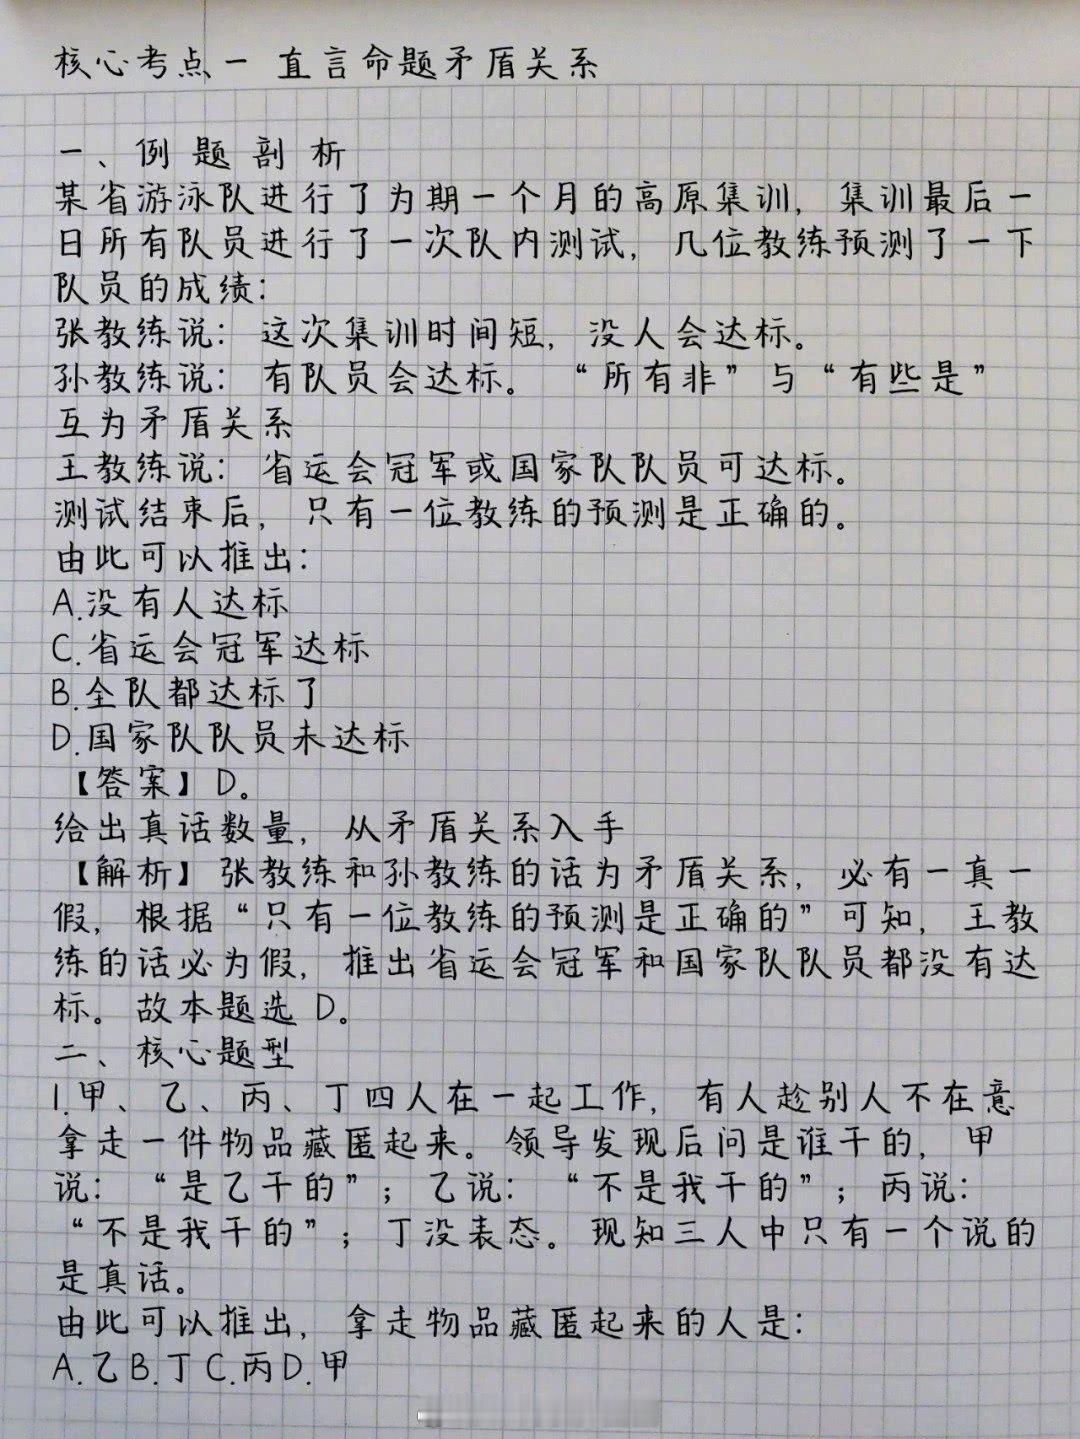 核心考点一 直言命题矛盾关系
一、例题剖析
某省游泳队进行了为期一个月的高原集训，集训最后一
日所有队员进行了一次队内测试，几位教练预测了一下
队员的成绩：
张教练说：这次集训时间短，没人会达标。
孙教练说：有队员会达标。“所有非”与“有些是”
互为矛盾关系
王教练说：省运会冠军或国家队队员可达标。
测试结束后，只有一位教练的预测是正确的。
由此可以推出：
A.没有人达标
C.省运会冠军达标
B.全队都达标了
D.国家队队员未达标
【答案】D。
给出真话数量，从矛盾关系入手
【解析】张教练和孙教练的话为矛盾关系，必有一真一
假，根据“只有一位教练的预测是正确的”可知，王教
练的话必为假，推出省运会冠军和国家队队员都没有达
标。故本题选D。
二、核心题型
1.甲、乙、丙、丁四人在一起工作，有人趁别人不在意
拿走一件物品藏匿起来。领导发现后问是谁干的，甲
说：“是乙干的”；乙说：“不是我干的”；丙说：
“不是我干的”；丁没表态。现知三人中只有一个说的
是真话。
由此可以推出，拿走物品藏匿起来的人是：
A.乙B.丁C.丙D.甲